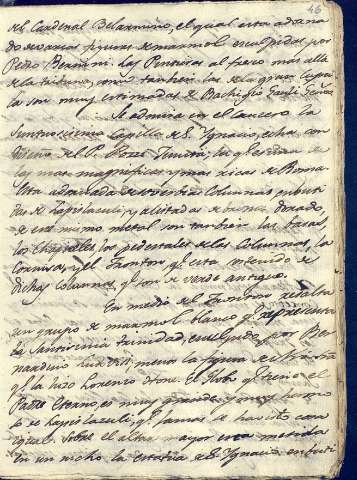 46
del Cardenal Belarmino, el qual esta adorna
do de varias figuras de marmol esculpidas por
Pedro Bernini. Las Pinturas al fresco mas alla
de la tribuna, como tambien las de la gran Cupu
la son muy estimadas de Bachicio Gauli Genov.
Se admira en el crucero la
Suntuosisima Capilla de S. Ignacio, echa con
diseño del P. Pozzi Jesuita; la ql. es una de
las mas magnificas y mas ricas de Roma
Esta adornada de Columnas cubier
tas de Lapislazuli, y alistadas de bronce dorado,
de este mismo metal son tambien las basas
los Chapiteles los pedestales de las Columnas, la
Cornisa, y el Fronton ql. esta sostenido de
dichas Columnas, ql. son de verde antiguo.
En medio del Fronton resalta
un grupo de marmol blanco ql. representa
la Santisima trinidad, esculpido por Be
nardino Ludovisi menos la figura de
ql. la hizo Lorenzo Otone. El Globo ql. tiene el
Padre Eterno, es muy grande, y muy hermo
so de lapislazuli, ql. jamas se ha visto cosa
igual. Sobre el altar mayor esta metida
en un nicho la estatua de S. Ignacio